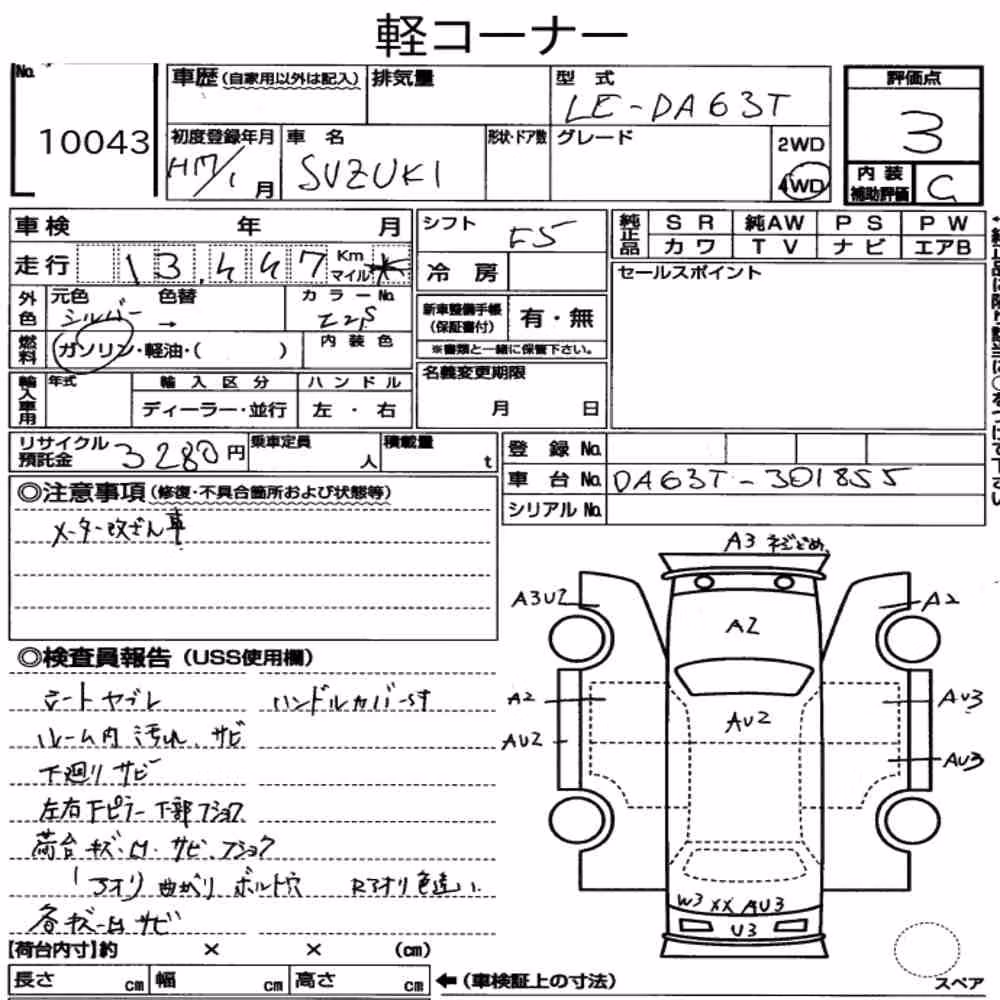 軽コーナー
No. 10043
車歴(自家用以外は記入) 排気量 型式 LE-DA63T
初度登録年月 H17/1月 車名 SUZUKI 形状・ドア数 グレード 2WD 4WD
評価点 3
内装補助評価 C
車検 年 月
走行 13,447 Km マイル *
外色 元色 シルバー 色替 → カラーNo. Z2S
燃料 ガソリン・軽油・( ) 内装色
輸入車用 年式 輸入区分 ハンドル
ディーラー・並行 左・右
シフト F5
冷房
新車整備手帳(保証書付) 有・無
※書類と一緒に保管下さい。
名義変更期限
月 日
純正品 SR 純AW PS PW
カワ TV ナビ エアB
セールスポイント
リサイクル預託金 3280円 乗車定員 人 積載量 t
登録No.
車台No. DA63T-301855
シリアルNo.
◎注意事項(修復・不具合箇所および状態等)
メーター改ざん車
◎検査員報告(USS使用欄)
シートヤブレ ハンドルカバーらす
ルーム内汚れ、サビ
下廻りサビ
左右下ピラー下部フショク
荷台キズ・凹・サビ、フショク
アオリ曲がり ボルト穴 Rアオリ色違い
各キズ凹サビ
A3 ネジどめ
A3U2
A2
A2
A2
AU3
AU2
AU2
AU3
W3 XX AU3
U3
[荷台内寸]約 × × (cm)
長さ cm 幅 cm 高さ cm ←(車検証上の寸法)
スペア